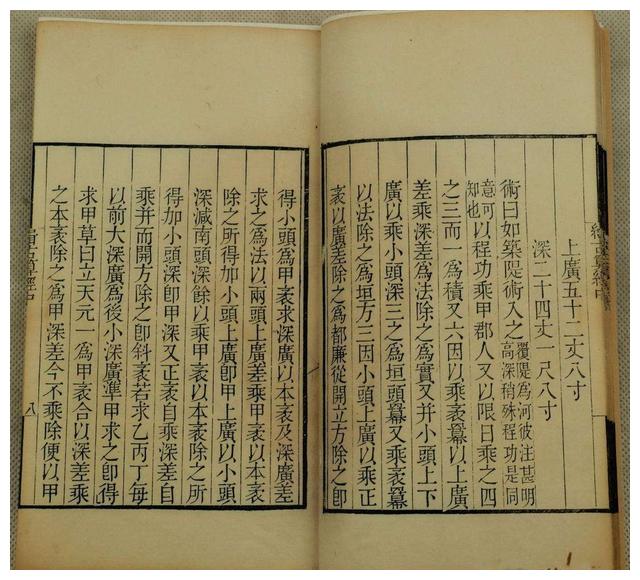 上廣五十二丈八寸
深二十四丈一尺八寸
術曰如築隄術入之覆隄爲河彼注甚明高深稍殊程功是同
意可知也以程功乘甲郡人又以限日乘之四
之三而一爲積又六因以乘袤冪以上廣
差乘深差爲法除之爲實又并小頭上下
廣以乘小頭深三之爲垣頭冪又乘袤冪
以法除之爲垣方三因小頭上廣以乘正
袤以廣差除之爲都廉從開立方除之卽
得小頭爲甲袤求深廣以本袤及深廣差
求之爲法以兩頭上廣差乘甲袤以本袤
除之所得加小頭上廣卽甲上廣以小頭
深減南頭深餘以乘甲袤以本袤除之所
得加小頭深卽甲深又正袤自乘深差自
乘并而開方除之卽斜袤若求乙丙丁每
以前大深廣爲後小深廣準甲求之卽得
求甲草曰立天元一爲甲袤合以深差乘
之本袤除之爲甲深差今不乘除便以甲
緝古算經中
八